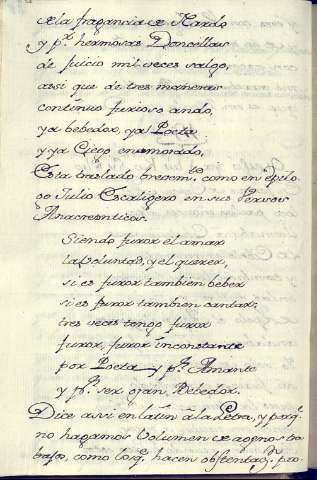 de la fragancia de Nardo
y p.r hermosas Doncellas
de juicio mil veces salgo,
assi que de tres maneras
continuo furioso ando,
ya bebedor, ya Poeta
y ya Ciego enamorado,
Esta traslado brevem.te como en Epilo
go Julio Escaligero en sus Versos
Anacreonticos.
Siendo furor el amar
la voluntad, y el querer,
si es furor tambien beber
si es furor tambien cantar,
tres veces tengo furor
furor, furor inconstante
por Poeta y p.r Amante
y p.r ser gran Bebedor.
Dice assi en latin â la letra, y porq.
no hagamos Volumen de agenos tra
bajos, como los q. hacen obstentaz.n pro